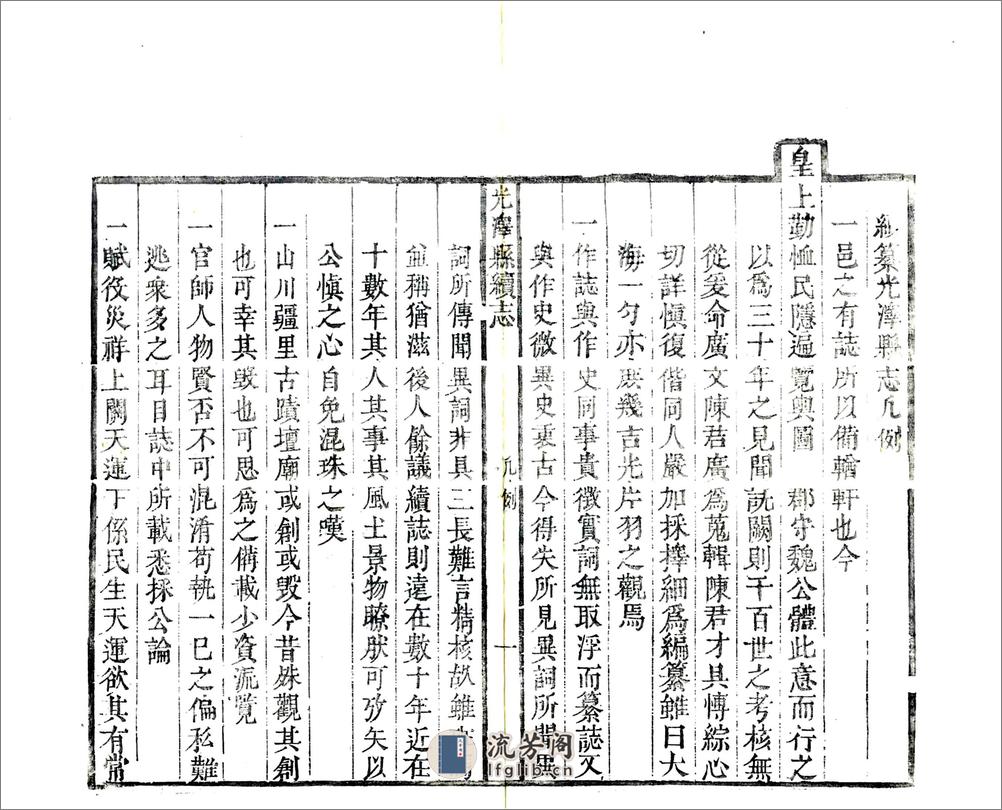 纂光澤縣志凡例
一邑之有誌所以備輶軒也今
皇上勤恤民隱遍覽輿圖 郡守魏公體此意而行之
以爲三十年之見聞訛闕則千百世之考核無
從爰命廣文陳君廣爲蒐輯陳君才具慱綜心
切詳慎復偕同人嚴加採擇細爲編纂雖曰大
海一勺亦庶幾吉光片羽之觀焉
一作誌與作史同事貴徵實詞無取浮而纂誌又
與作史微異史裏古今得失所見異詞所聞異
光澤縣續志 凡例 一
詞所傳聞異詞非具三長難言精核故雖
並稱猶滋後人餘議續誌則遠在數十年近在
十數年其人其事其風土景物瞭肰可攷矣以
公慎之心自免混珠之嘆
一山川疆里古蹟壇廟或創或毀今昔姝觀其創
也可幸其毀也可思爲之備載少資流覽
一官師人物賢否不可混淆苟執一巳之偏私難
逃衆多之耳目誌中所載悉採公論
一賦役災祥上關天運下係民生天運欲其有常
流芳阁
lfglib.cn